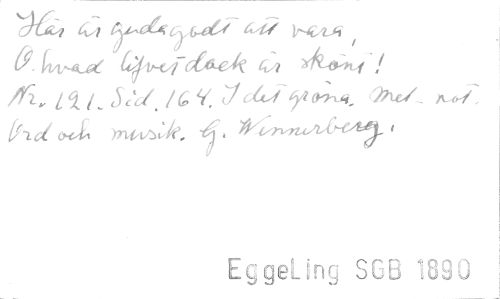 Här är gudagodt att vara,
O. hvad lifvet dock är skönt!
Nr. 121. Sid. 164. I det gröna. Mel. not.
Ord och musik. G. Wennerberg.
EggeLing SGB 1890